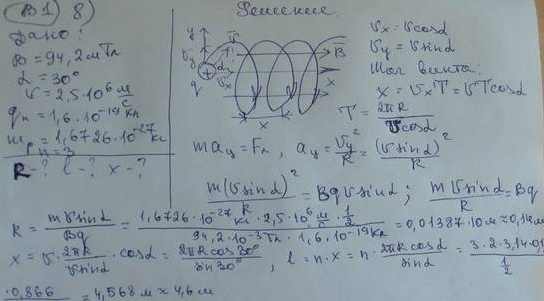 B1) 8)
Решение.
Дано:
B = 94,2 мТл
α = 30°
v = 2,5·10⁶ м/с
qп = 1,6·10⁻¹⁹ Кл
mp = 1,6726·10⁻²⁷ кг
n = 3
R - ? l - ? x - ?
y v B x
vy α vx q
x
vx = v cosα
vy = v sinα
Шаг винта:
x = vxT = vT cosα
T = 2πR / v cosα
may = Fл, ay = vy²/R = (v sinα)²/R
m(v sinα)²/R = Bqv sinα; mv sinα/R = Bq
R = mv sinα/Bq = 1,6726·10⁻²⁷ кг·2,5·10⁶ м/с·1/2 / 94,2·10⁻³ Тл·1,6·10⁻¹⁹ Кл = 0,01387·10 м ≈ 0,14 м
x = v·2πR/v sinα·cosα = 2πR cos30°/sin30°, l = n·x = n·2πR cosα/sinα = 3·2·3,14·0,1
1/2
·0,866 = 4,568 м ≈ 4,6 м